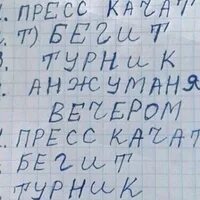 ПРЕСС КАЧАТ
Т) БЕГИТ
ТУРНИК
АНЖУМАНЯ
ВЕЧЕРОМ
ПРЕСС КАЧАТ
БЕГИТ
ТУРНИК